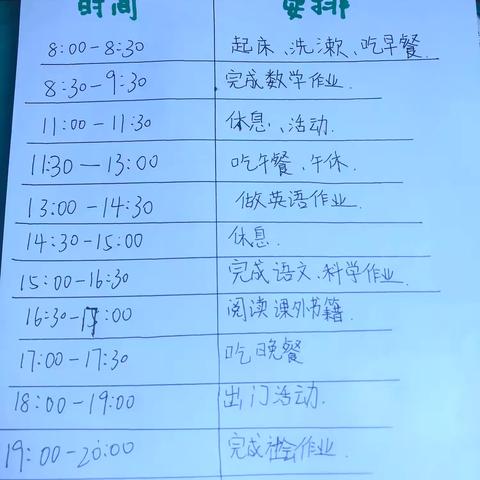 时间 安排
8:00-8:30 起床、洗漱、吃早餐.
8:30-9:30 完成数学作业.
11:00-11:30 休息、活动.
11:30—13:00 吃午餐、午休.
13:00-14:30 做英语作业.
14:30-15:00 休息.
15:00-16:30 完成语文、科学作业.
16:30-17:00 阅读课外书籍.
17:00-17:30 吃晚餐
18:00-19:00 出门活动.
19:00-20:00 完成社会作业.